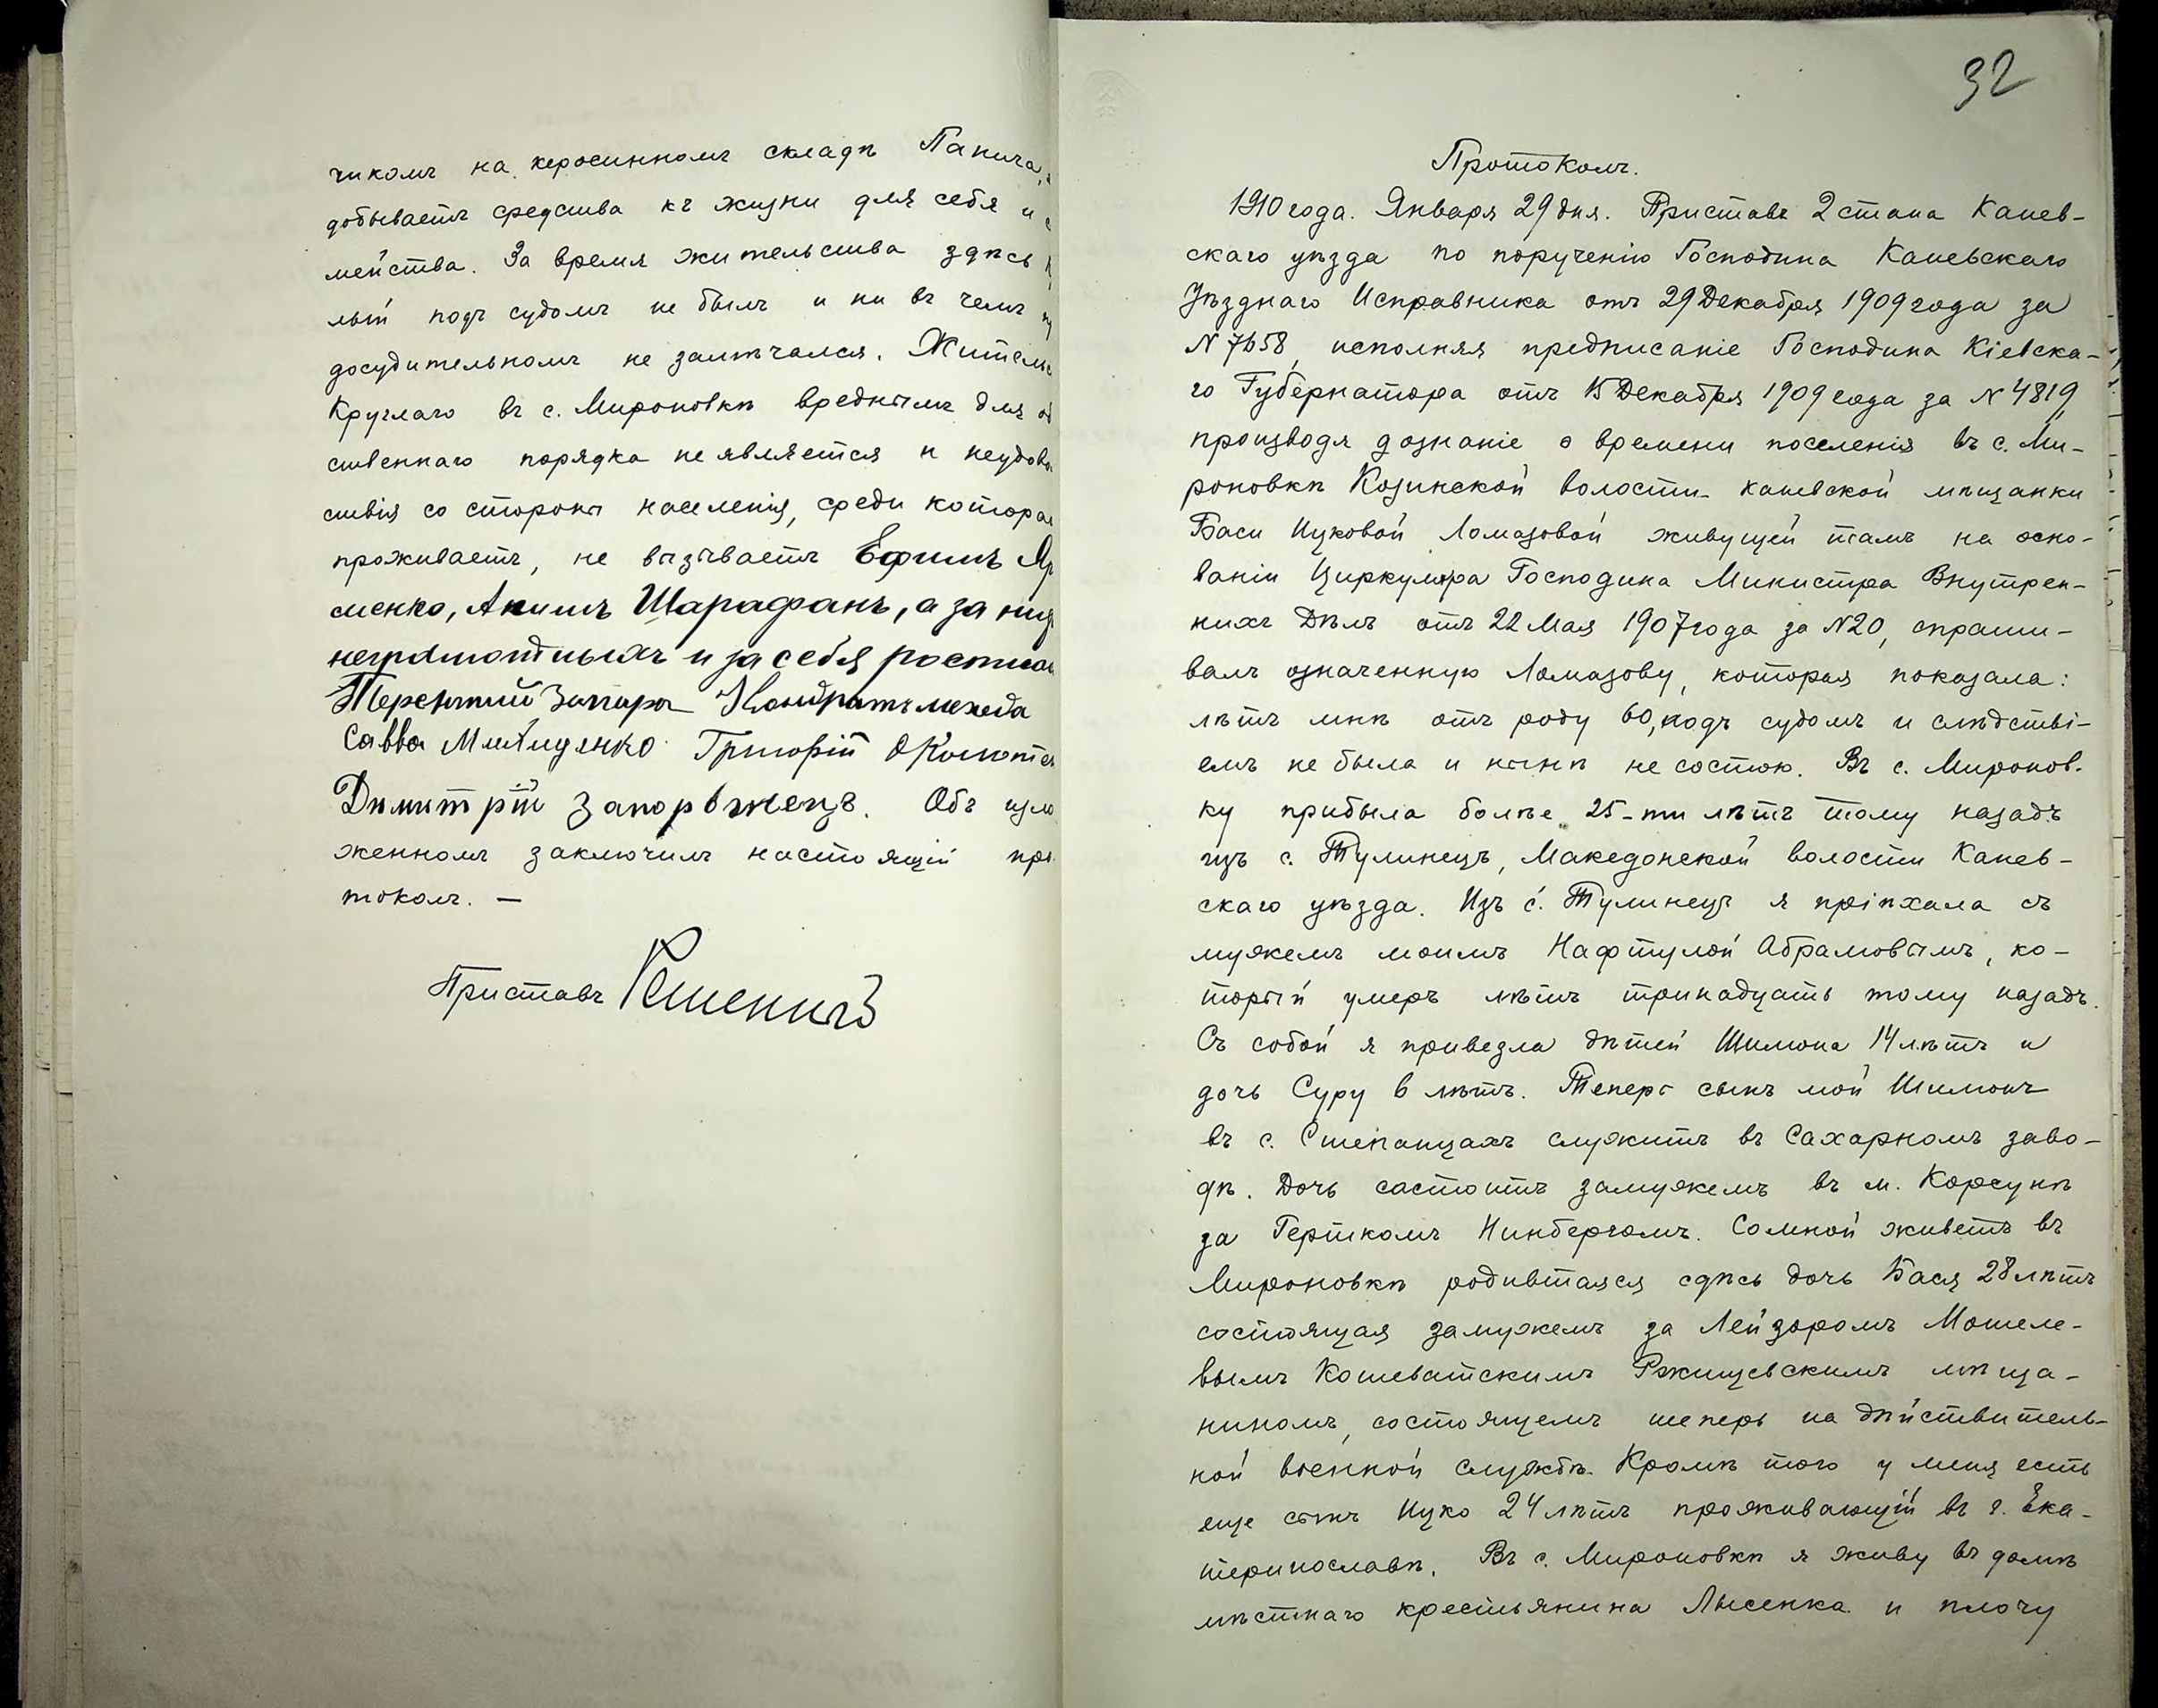 чикомъ на керосинномъ складѣ Панича,
добываетъ средства къ жизни для себя и с
мейства. За время жительства здѣсь К
лый подъ судомъ не былъ и ни въ чемъ
досудительномъ не замѣчался. Жительс
Круглаго въ с. Мироновкѣ вреднымъ для об
ственнаго порядка не является и неудово
ствія со стороны населенія, среди котора
проживаетъ, не вызываетъ Ефимъ Яр
менко, Акимъ Шарафанъ, а за ни
неграмотныхъ и за себя росписа
Терентій Кондратъ
Савва Григорій
Димитрій Запорожецъ. Объ изло
женномъ заключилъ настоящій про
токолъ. —
Приставъ
32
Протоколъ.
1910 года. Января 29 дня. Приставъ 2 стана Канев-
скаго уѣзда по порученію Господина Каневскаго
Уѣзднаго Исправника отъ 29 Декабря 1909 года за
N 7658, исполняя предписаніе Господина Кіевска-
го Губернатора отъ 15 Декабря 1909 года за N 4819,
производя дознаніе о времени поселенія въ с. Ми-
роновкѣ Козинской волости каневской мѣщанки
Баси Ицковой Ломазовой живущей тамъ на осно-
ваніи Циркуляра Господина Министра Внутрен-
нихъ Дѣлъ отъ 22 Мая 1907 года за N20, спраши-
валъ означенную Ломазову, которая показала:
лѣтъ мнѣ отъ роду 60, подъ судомъ и слѣдстві-
емъ не была и нынѣ не состою. Въ с. Миронов-
ку прибыла болѣе 25-ти лѣтъ тому назадъ
изъ с. Тулинецъ, Македонской волости Канев-
скаго уѣзда. Изъ с. Тулинецъ я пріѣхала съ
мужемъ моимъ Нафтулой Абрамовымъ, ко-
торый умеръ лѣтъ тринадцать тому назадъ.
Съ собой я привезла дѣтей Шимона 14 лѣтъ и
дочь Суру 6 лѣтъ. Теперь сынъ мой Шимонъ
въ с. Степанцахъ служитъ въ Сахарномъ заво-
дѣ. Дочь состоитъ замужемъ въ м. Корсунѣ
за Гершкомъ Нинбергомъ. Сомной живетъ въ
Мироновкѣ родившаяся сдѣсь дочь Бася 28 лѣтъ
состоящая замужемъ за Лейзоромъ Мошеле-
вымъ Кошеватскимъ Ржищевскимъ мѣща-
ниномъ, состоящемъ теперь на дѣйствитель-
ной военной службѣ. Кромѣ того у меня есть
еще сынъ Ицко 24 лѣтъ проживающій въ г. Ека-
теринославѣ. Въ с. Мироновкѣ я живу въ домѣ
мѣстнаго крестьянина Лысенка и плочу